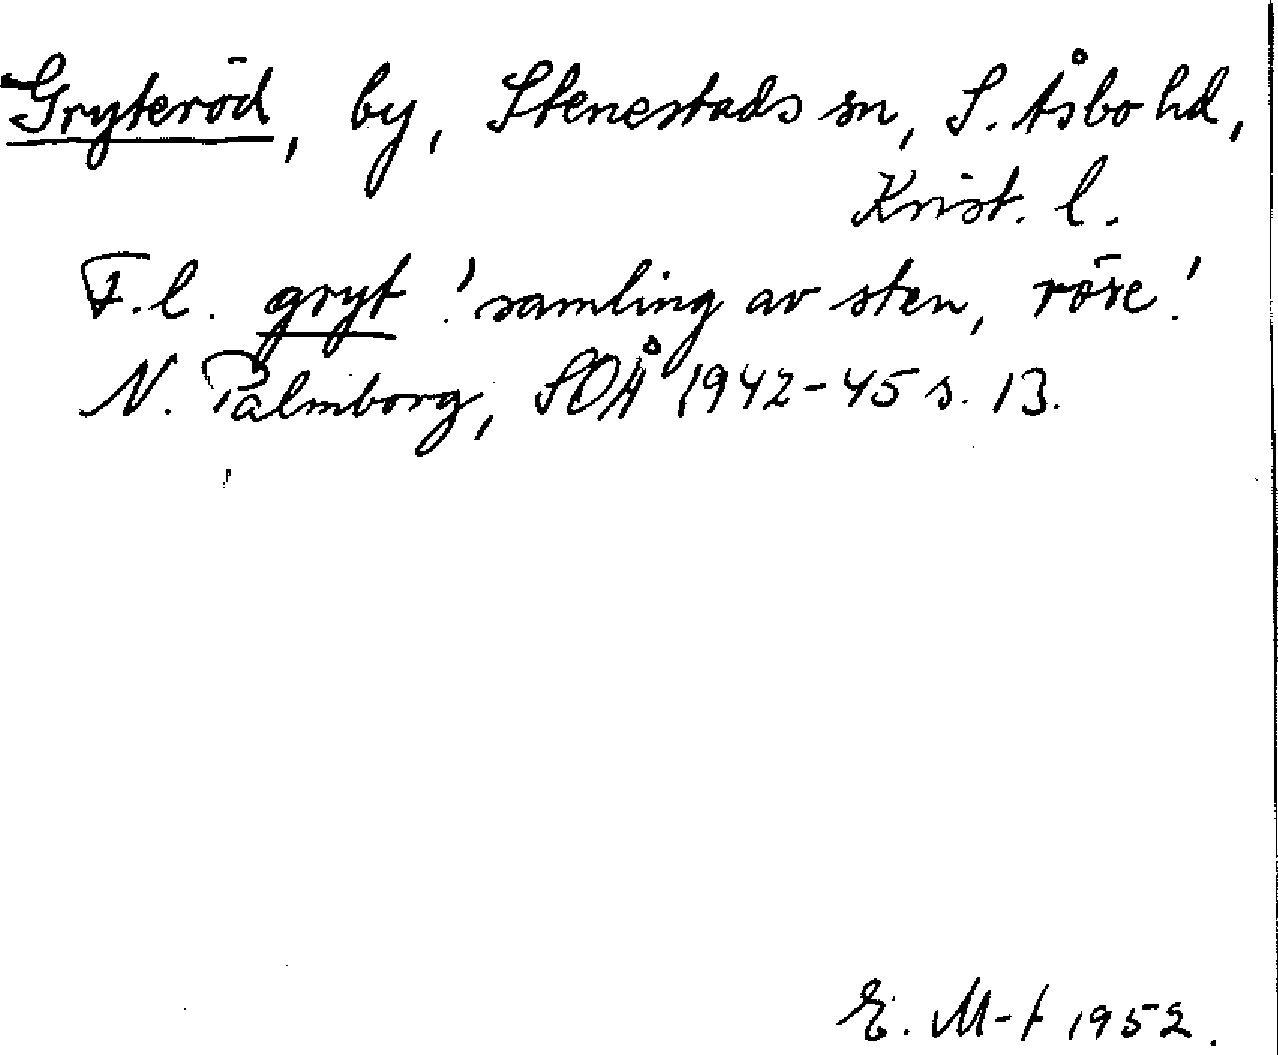 Gryteröd, by, Stenestads sn, S. Åsbo hd,
Krist. l.
F.l. gryt 'samling av sten, röse'.
N. Palmborg, SOÅ 1942-45 s. 13.
E. M-t 1952.